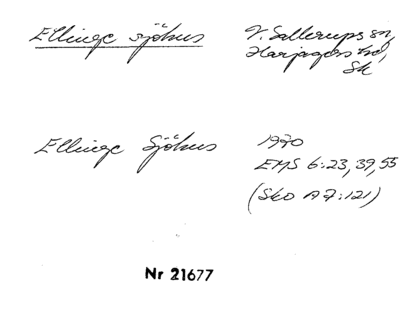 Ellinge sjöhus
V. Sallerups sn,
Harjagers hd,
Sk
Ellinge Sjöhus
1970
EMS 6:23, 39, 55
(Sko A7:121)
Nr 21677